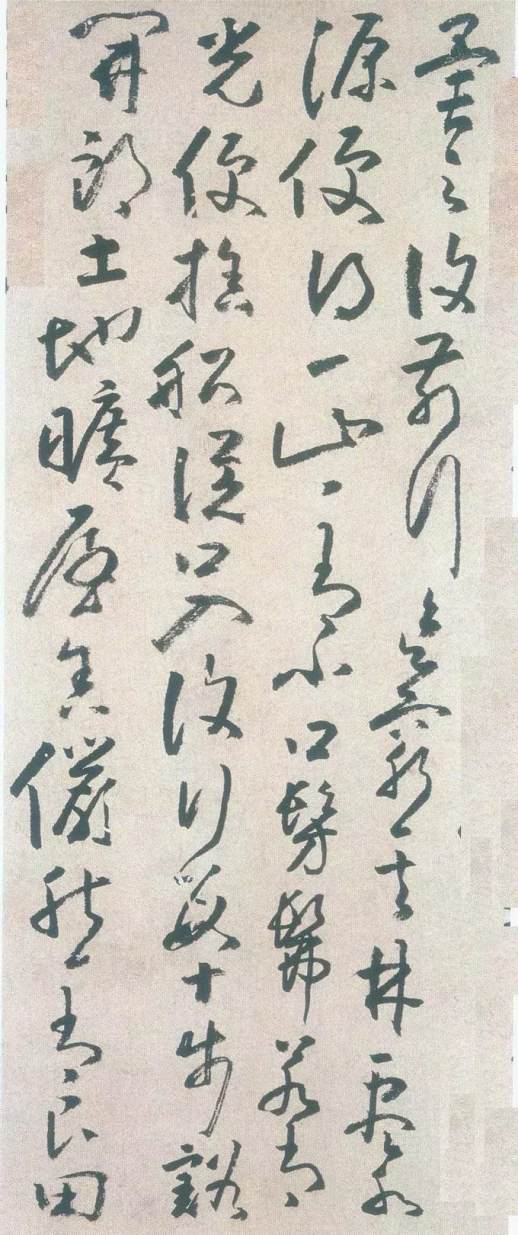 之復前行欲窮其林盡水
源便得一山〻有小口髣髴若有
光便捨船從口入復行數十步豁
開朗土地曠屋舍儼然有良田